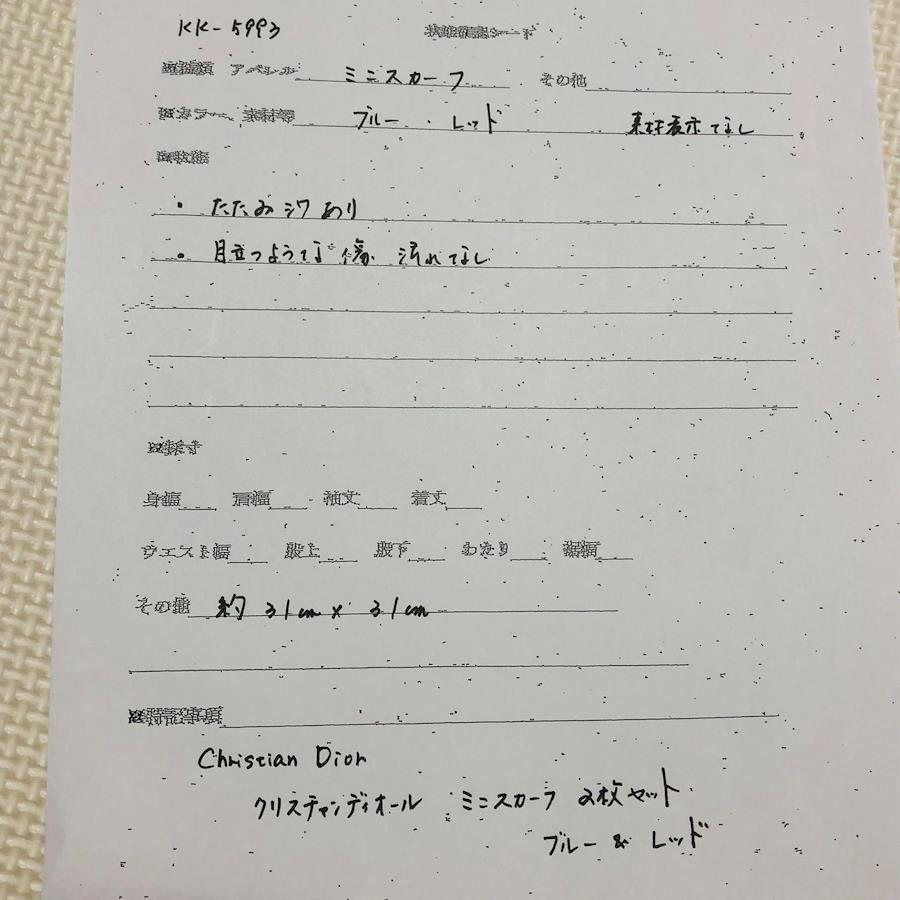 KK-5993 状態確認シート
※種類 アパレル ミニスカーフ その他
※カラー、素材等 ブルー・レッド 素材表示なし
※状態
・たたみジワあり
・目立つような傷、汚れなし
※採寸
身幅 肩幅 袖丈 着丈
ウエスト幅 股上 股下 わたり 裾幅
その他 約31cm×31cm
※特記事項
Christian Dior
クリスチャンディオール ミニスカーフ 2枚セット
ブルー & レッド